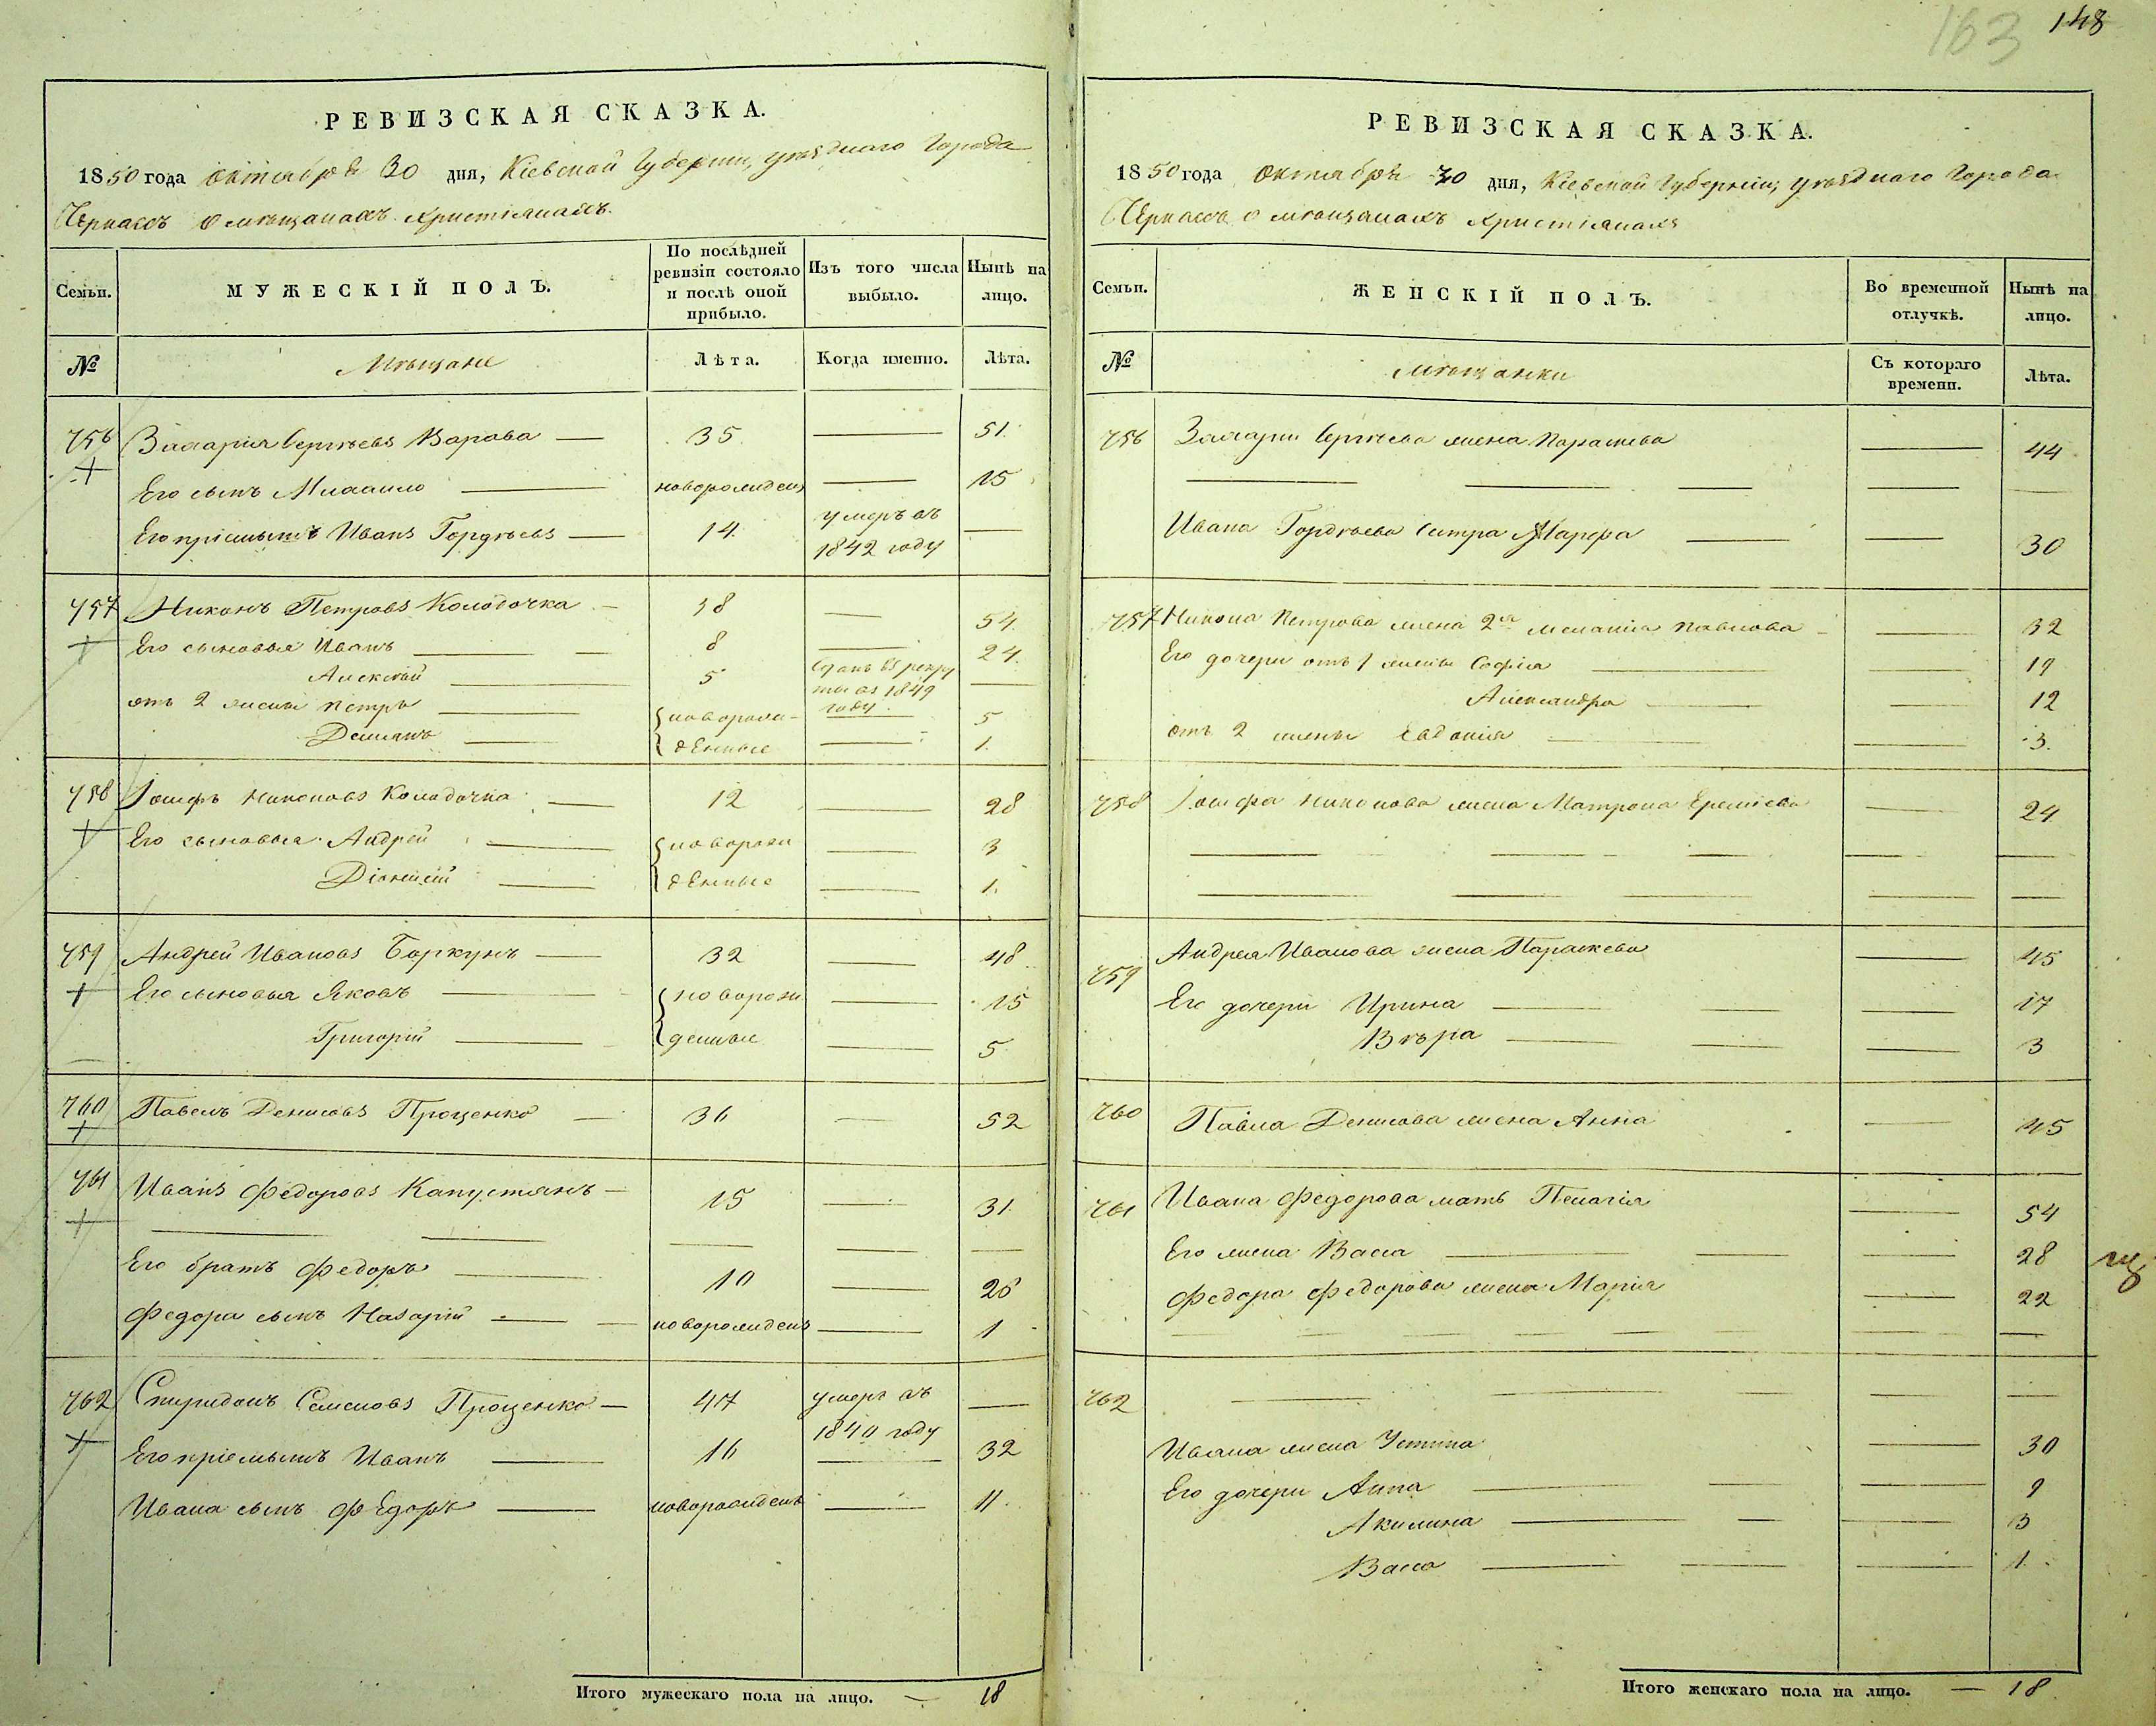 163 148
РЕВИЗСКАЯ СКАЗКА.
1850 года октября 30 дня, Кіевской Губерніи, уѣзднаго Города
Черкассъ о мѣщанахъ христіянахъ.
Семьи. МУЖЕСКІЙ ПОЛЪ. По послѣдней ревизіи состояло и послѣ оной прибыло. Изъ того числа выбыло. Нынѣ на лицо.
№ Мѣщане Лѣта. Когда именно. Лѣта.
756 Захарія Сергѣевъ Варава — 35 — 51.
Его сынъ Михаило — новорожденъ — 15
Его пріемышъ Иванъ Гордѣевъ — 14. умеръ въ 1842 году —
757 Никонъ Петровъ Колодочка — 38 — 54.
Его сыновья Иванъ — 8 — 24.
Алексѣй — 5 сданъ въ рекруты въ 1849 году. —
отъ 2 жены Петръ — новорож- — 5
Демянъ — денные — 1.
758 Іосифъ Никоновъ Колодочка — 12 — 28
Его сыновья Андрей — новорож — 3
Діонисій — денные — 1.
759 Андрей Ивановъ Боркунъ — 32 — 48
Его сыновья Яковъ — новорож — 15
Григорій — денные — 5
760 Павелъ Денисовъ Проценко — 36 — 52
761 Иванъ Федоровъ Капустянъ — 15 — 31.
— — — — —
Его братъ Федоръ — 10 — 26
Федора сынъ Назарій — новорожденъ — 1
762 Спиридонъ Семеновъ Проценко — 47 умеръ въ 1840 году —
Его пріемышъ Иванъ — 16 — 32
Ивана сынъ Федоръ — новорожденъ — 11.
Итого мужескаго пола на лицо. — 18
РЕВИЗСКАЯ СКАЗКА.
1850 года Октября 30 дня, Кіевской Губерніи, уѣзднаго Города
Черкассъ о мѣщанахъ христіянахъ
Семьи. ЖЕНСКІЙ ПОЛЪ. Во временной отлучкѣ. Нынѣ на лицо.
№ Мѣщанки Съ котораго времени. Лѣта.
756 Захарія Сергѣева жена Парасковья — 44
— — — — —
Ивана Гордѣева сестра Марфа — — 30
757 Никона Петрова жена 2я Меланія Павлова — — 32
Его дочери отъ 1 жены Софія — — 19
Александра — — 12
отъ 2 жены Евдокія — — 3.
758 Іосифа Никонова жена Матрона Еремѣева — 24
— — — — —
— — — — —
759 Андрея Иванова жена Параскева — 45
Его дочери Ирина — — — 17
Вѣра — — — 3
760 Павла Денисова жена Анна — 45
761 Ивана Федорова мать Пелагія — 54
Его жена Васса — — — 28
Федора Федорова жена Марія — 22
— — — — — — — —
762 — — — — —
Ивана жена Устина — 30
Его дочери Анна — — — 9
Акилина — — — 3
Васса — — — 1.
Итого женскаго пола на лицо. — 18.